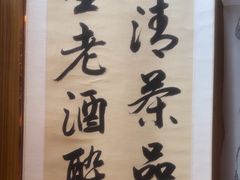 清茶品
老酒醉